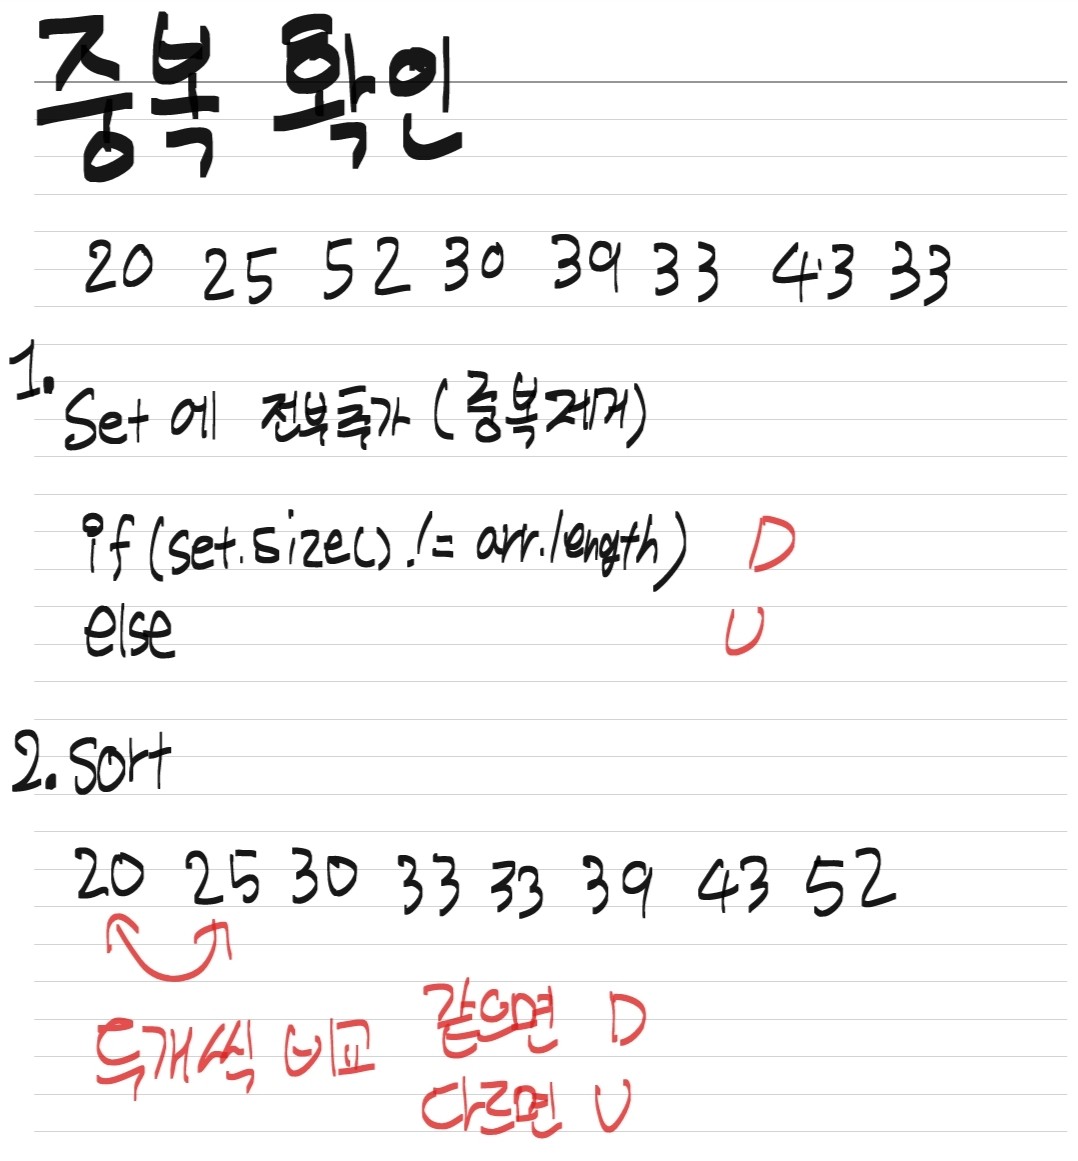 중복 확인
20 25 52 30 39 33 43 33
1.
Set 에 전부추가 (중복제거)
if (set.size() != arr.length) D
else U
2. Sort
20 25 30 33 33 39 43 52
두개씩 비교 같으면 D
다르면 U